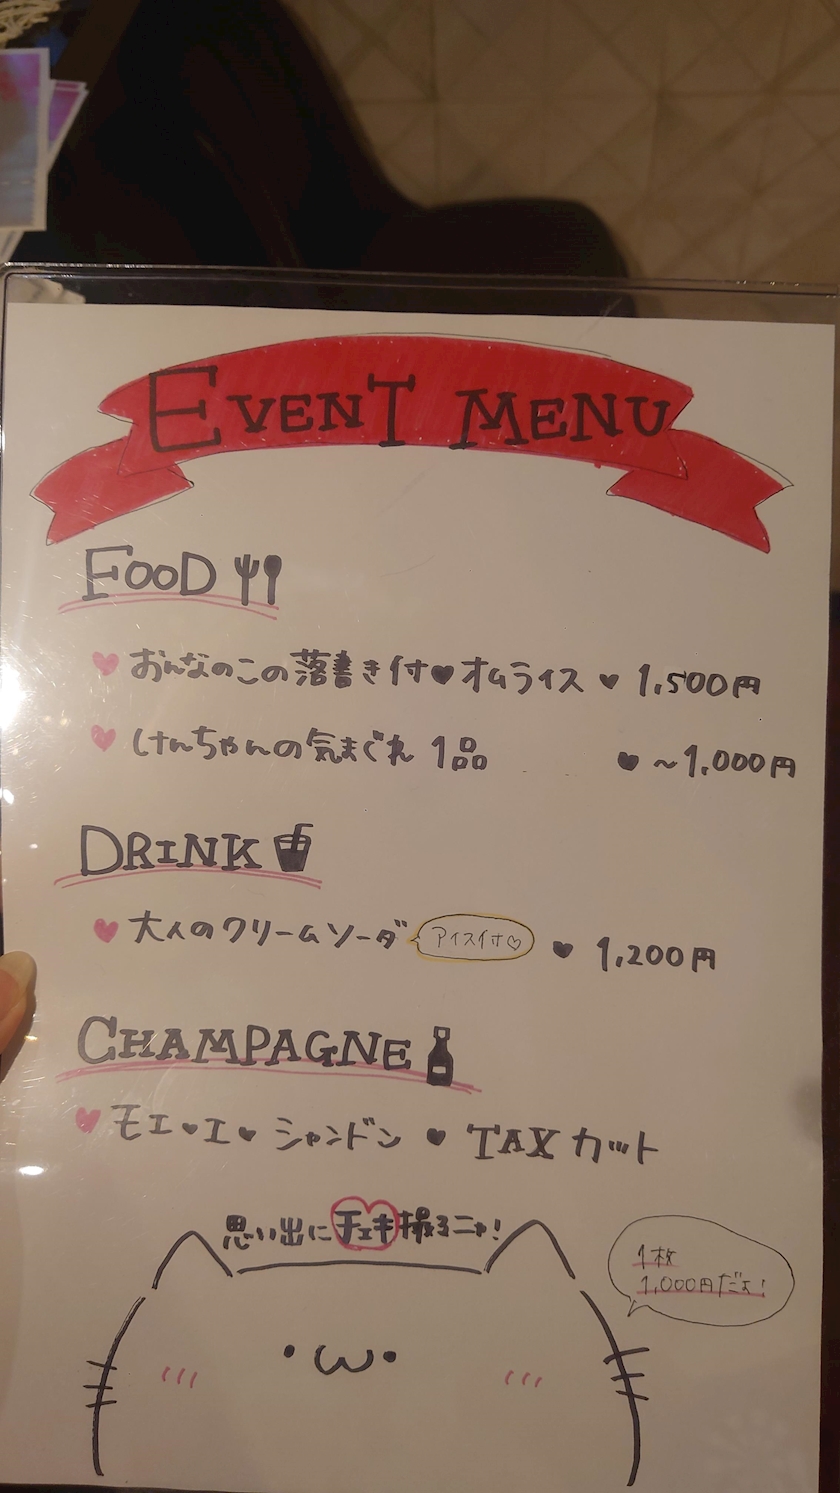 EVENT MENU
FOOD
♥ おんなのこの落書き付♥オムライス ♥ 1,500円
♥ けんちゃんの気まぐれ 1品 ♥ ~1,000円
DRINK
♥ 大人のクリームソーダ アイス付♡ ♥ 1,200円
CHAMPAGNE
♥ モエ♥エ♥シャンドン ♥ TAXカット
思い出にチェキ撮るニャ!
1枚
1,000円だよ!
・ω・